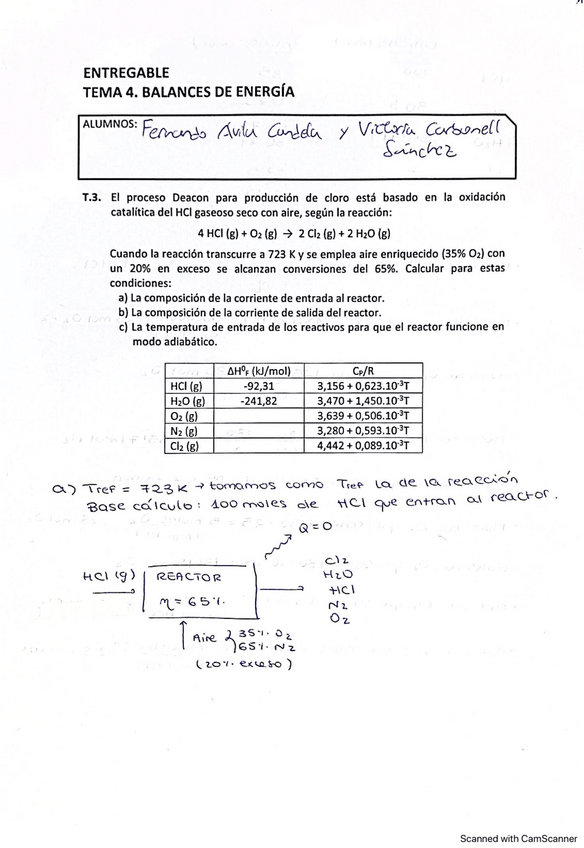 ENTREGABLE
TEMA 4. BALANCES DE ENERGÍA
ALUMNOS: Fernando Avila Candela y Victoria Carbonell
Sánchez
T.3. El proceso Deacon para producción de cloro está basado en la oxidación
catalítica del HCl gaseoso seco con aire, según la reacción:
4 HCl (g) + O₂ (g) → 2 Cl₂ (g) + 2 H₂O (g)
Cuando la reacción transcurre a 723 K y se emplea aire enriquecido (35% O₂) con
un 20% en exceso se alcanzan conversiones del 65%. Calcular para estas
condiciones:
a) La composición de la corriente de entrada al reactor.
b) La composición de la corriente de salida del reactor.
c) La temperatura de entrada de los reactivos para que el reactor funcione en
modo adiabático.
ΔH⁰F (kJ/mol) CP/R
HCl (g) -92,31 3,156 + 0,623.10⁻³T
H₂O (g) -241,82 3,470 + 1,450.10⁻³T
O₂ (g) 3,639 + 0,506.10⁻³T
N₂ (g) 3,280 + 0,593.10⁻³T
Cl₂ (g) 4,442 + 0,089.10⁻³T
a) Tref = 723 K → tomamos como Tref la de la reacción
Base cálculo: 100 moles de HCl que entran al reactor.
Q = 0
HCl (g)
REACTOR
η = 65%
Cl2
H2O
HCl
N2
O2
Aire 35% O2
65% N2
(20% exceso)
Scanned with CamScanner